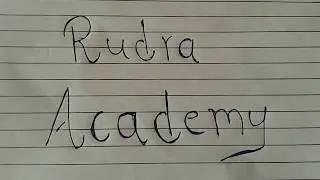 Rudra
Academy